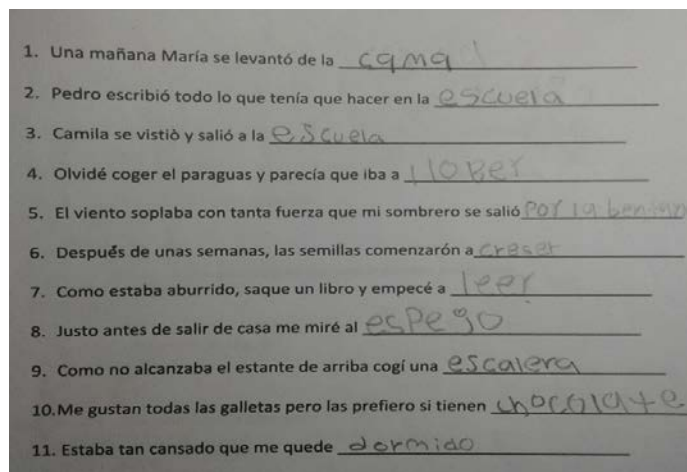 1. Una mañana María se levantó de la cama
2. Pedro escribió todo lo que tenía que hacer en la escuela
3. Camila se vistiò y salió a la escuela
4. Olvidé coger el paraguas y parecía que iba a llober
5. El viento soplaba con tanta fuerza que mi sombrero se salió por la bentana
6. Después de unas semanas, las semillas comenzarón a creser
7. Como estaba aburrido, saque un libro y empecé a leer
8. Justo antes de salir de casa me miré al espego
9. Como no alcanzaba el estante de arriba cogí una escalera
10.Me gustan todas las galletas pero las prefiero si tienen chocolate
11. Estaba tan cansado que me quede dormido